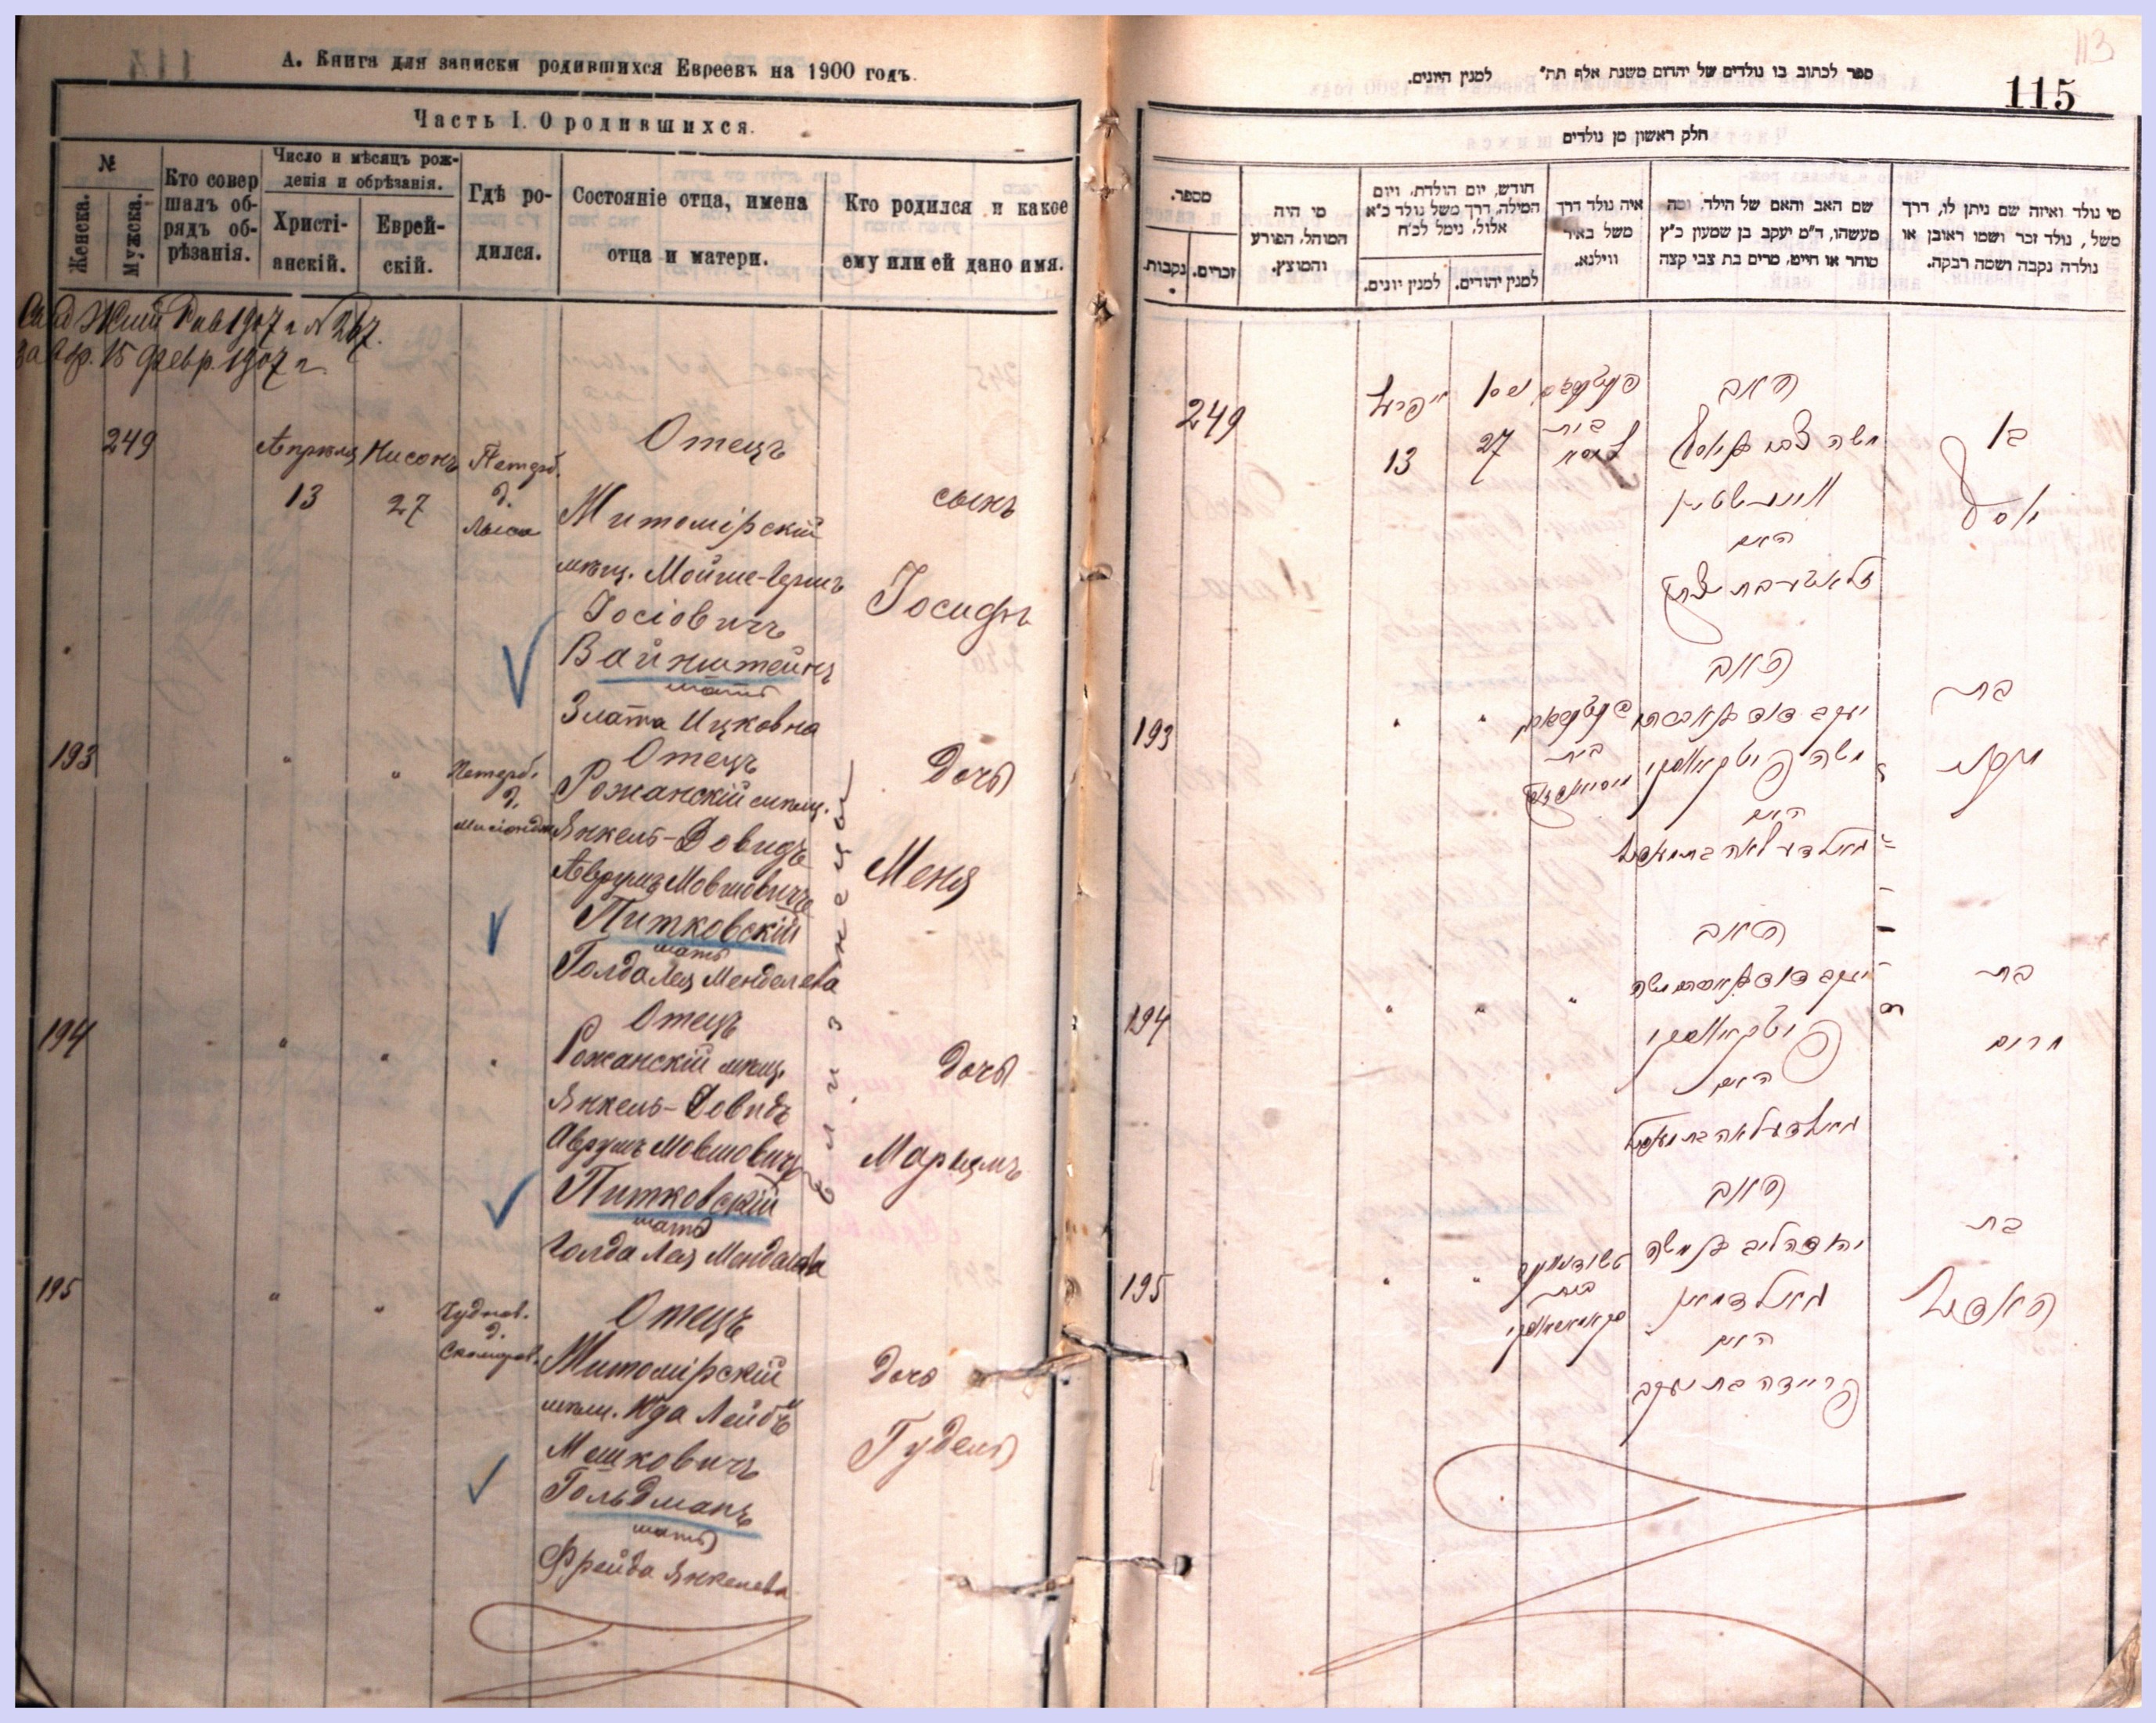 А. Книга для записки родившихся Евреевъ на 1900 годъ.
Часть I. О родившихся.
№
Женска.
Мужска.
Кто совер
шалъ об-
рядъ об-
рѣзанія.
Число и мѣсяцъ рож-
денія и обрѣзанія.
Христі-
анскій.
Еврей-
скій.
Гдѣ ро-
дился.
Состояніе отца, имена
отца и матери.
Кто родился и какое
ему или ей дано имя.
1907 г. № 267.
15 февр. 1907 г.
249
Апрѣля
13
Нисонъ
27
Петерб.
д.
Отецъ
Житомірскій
мѣщ. Мойше-Гершъ
Іосіовичъ
Вайнштейнъ
мать
Злата Ицковна
сынъ
Іосифъ
193
"
"
Петерб.
д.
Отецъ
Рожанскій мѣщ.
Янкель-Довидъ
Аврумъ Мовшовичъ
Питковскій
мать
Голда Лея Менделева
Дочь
Меня
близнецы
194
"
"
"
Отецъ
Рожанскій мѣщ.
Янкель-Довидъ
Аврумъ Мовшовичъ
Питковскій
мать
Голда Лея Менделева
Дочь
Марьямъ
195
"
"
Чуднов.
д.
Скоморов.
Отецъ
Житомірскій
мѣщ. Юда Лейбъ
Мошковичъ
Гольдманъ
мать
Фрейда Янкелева
Дочь
Гудель
113
115
ספר לכתוב בו נולדים של יהדום משנת אלף תת" למנין היונים.
חלק ראשון מן נולדים
מספר.
נקבות.
זכרים.
מי היה
המוהל, הפורע
והמוצץ.
חודש, יום הולדת, ויום
המילה, דרך משל נולד כ"א
אלול, נימל לכ"ח
למנין יונים.
למנין יהודים.
איה נולד דרך
משל באיר
ווילנא.
שם האב והאם של הילד, ומה
מעשהו, ד"מ יעקב בן שמעון כ"ץ
סוחר או חייט, מרים בת צבי קצה
מי נולד ואיזה שם ניתן לו, דרך
משל, נולד זכר ושמו ראובן או
נולדה נקבה ושמה רבקה.
249
אפריל
13
ניסן
27
בית
האב
משה צבי בן יוסף
וויינשטיין
האם
זלאטע בת יצחק
בן
יוסף
193
"
"
בית
האב
יעקב דוד בן אברהם
משה פיטקאווסקי
האם
גאלדע לאה בת מענדיל
בת
194
"
"
"
האב
יעקב דוד בן אברהם משה
פיטקאווסקי
האם
גאלדע לאה בת מענדיל
בת
מרים
195
"
"
בית
האב
יהודה ליב בן משה
גאלדמאן
האם
פריידה בת יעקב
בת
האדיל